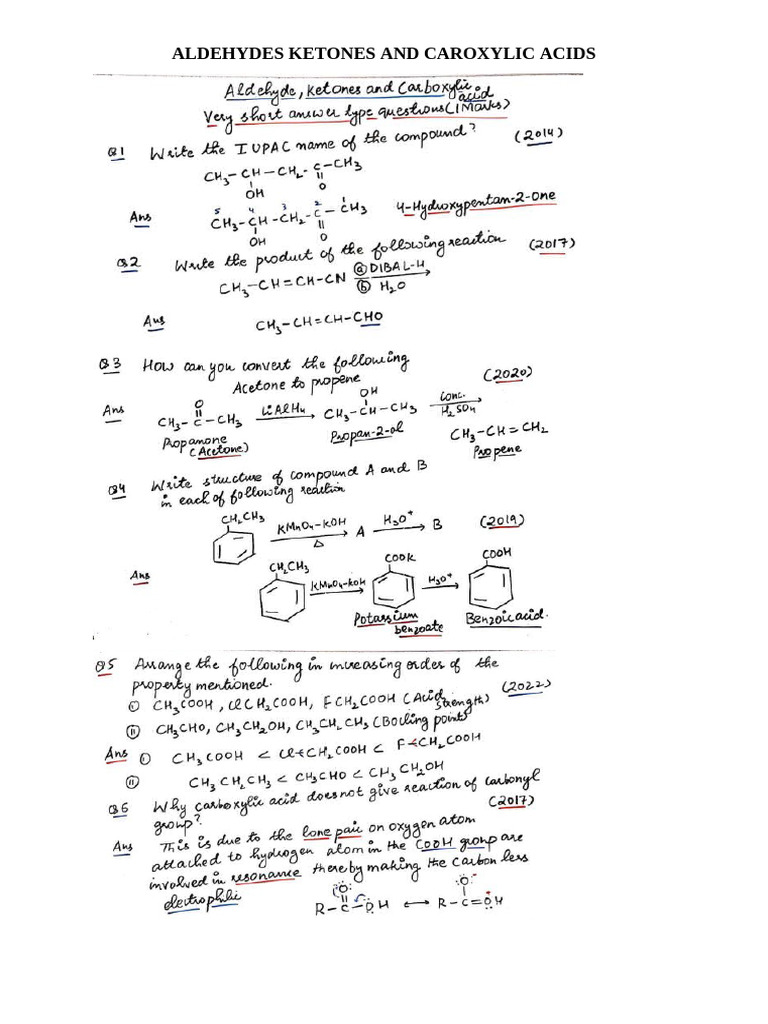 ALDEHYDES KETONES AND CAROXYLIC ACIDS
Aldehyde, Ketones and Carboxylic acid
Very short answer type questions (1 Marks)
Q1 Write the IUPAC name of the compound? (2014)
CH₃-CH-CH₂-C-CH₃
OH O
Ans 5 4 3 2 1
CH₃-CH-CH₂-C-CH₃ 4-Hydroxypentan-2-one
OH O
Q2 Write the product of the following reaction (2017)
CH₃-CH=CH-CN ⓐ DIBAL-H
ⓑ H₂O
Ans CH₃-CH=CH-CHO
Q3 How can you convert the following
Acetone to propene (2020)
Ans O OH
CH₃-C-CH₃ LiAlH₄ → CH₃-CH-CH₃ Conc. H₂SO₄ →
Propanone Propan-2-ol CH₃-CH=CH₂
(Acetone) Propene
Q4 Write structure of compound A and B
in each of following reaction
CH₂CH₃ KMnO₄-KOH → A H₃O⁺ → B (2019)
Δ
Ans CH₂CH₃ KMnO₄-KOH → COOK H₃O⁺ → COOH
Potassium benzoate Benzoic acid.
Q5 Arrange the following in increasing order of the
property mentioned. (2022)
ⓘ CH₃COOH, ClCH₂COOH, FCH₂COOH (Acid strength)
ⓘⓘ CH₃CHO, CH₃CH₂OH, CH₃CH₂CH₃ (Boiling point)
Ans ⓘ CH₃COOH < Cl←CH₂COOH < F←CH₂COOH
ⓘⓘ CH₃CH₂CH₃ < CH₃CHO < CH₃CH₂OH
Q6 Why carboxylic acid does not give reaction of carbonyl
group? (2017)
Ans This is due to the lone pair on oxygen atom
attached to hydrogen atom in the COOH group are
involved in resonance thereby making the carbon less
electrophilic
O O⁻
R-C-OH ↔ R-C=OH